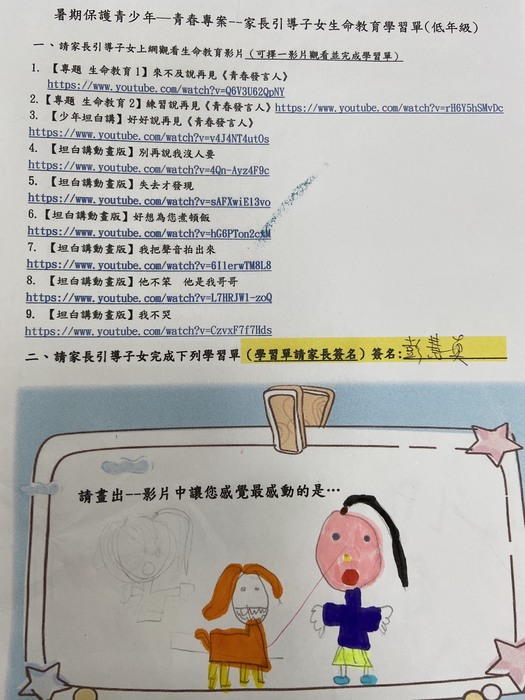 暑期保護青少年—青春專案--家長引導子女生命教育學習單(低年級)
一、請家長引導子女上網觀看生命教育影片(可擇一影片觀看並完成學習單)
1. 【專題 生命教育1】來不及說再見《青春發言人》
https://www.youtube.com/watch?v=Q6V3U62QpNY
2. 【專題 生命教育2】練習說再見《青春發言人》https://www.youtube.com/watch?v=rH6Y5hSMvDc
3. 【少年坦白講】好好說再見《青春發言人》
https://www.youtube.com/watch?v=v4J4NT4ut0s
4. 【坦白講動畫版】別再說我沒人要
https://www.youtube.com/watch?v=4Qn-Ayz4F9c
5. 【坦白講動畫版】失去才發現
https://www.youtube.com/watch?v=sAFXwiE13vo
6. 【坦白講動畫版】好想為您煮頓飯
https://www.youtube.com/watch?v=hG6PTon2cxM
7. 【坦白講動畫版】我把聲音拍出來
https://www.youtube.com/watch?v=6I1erwTM8L8
8. 【坦白講動畫版】他不笨 他是我哥哥
https://www.youtube.com/watch?v=L7HRJW1-zoQ
9. 【坦白講動畫版】我不哭
https://www.youtube.com/watch?v=CzvxF7f7Hds
二、請家長引導子女完成下列學習單(學習單請家長簽名)簽名:
請畫出--影片中讓您感覺最感動的是…